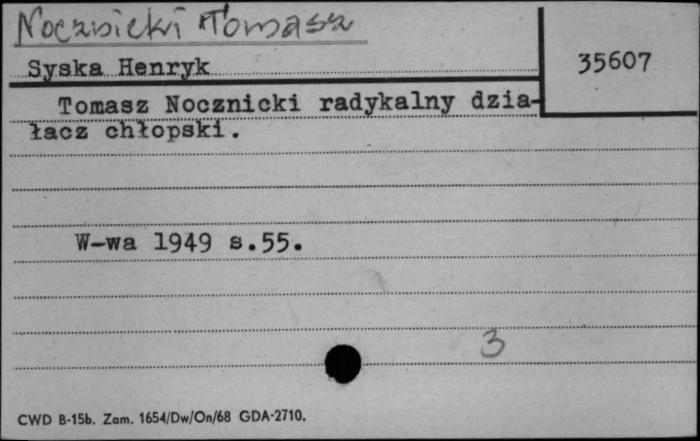 Nocznicki Tomasz
Syska Henryk
35607
Tomasz Nocznicki radykalny dzia-
łacz chłopski.
W-wa 1949 s.55.
3
CWD B-15b. Zam. 1654/Dw/On/68 GDA-2710.